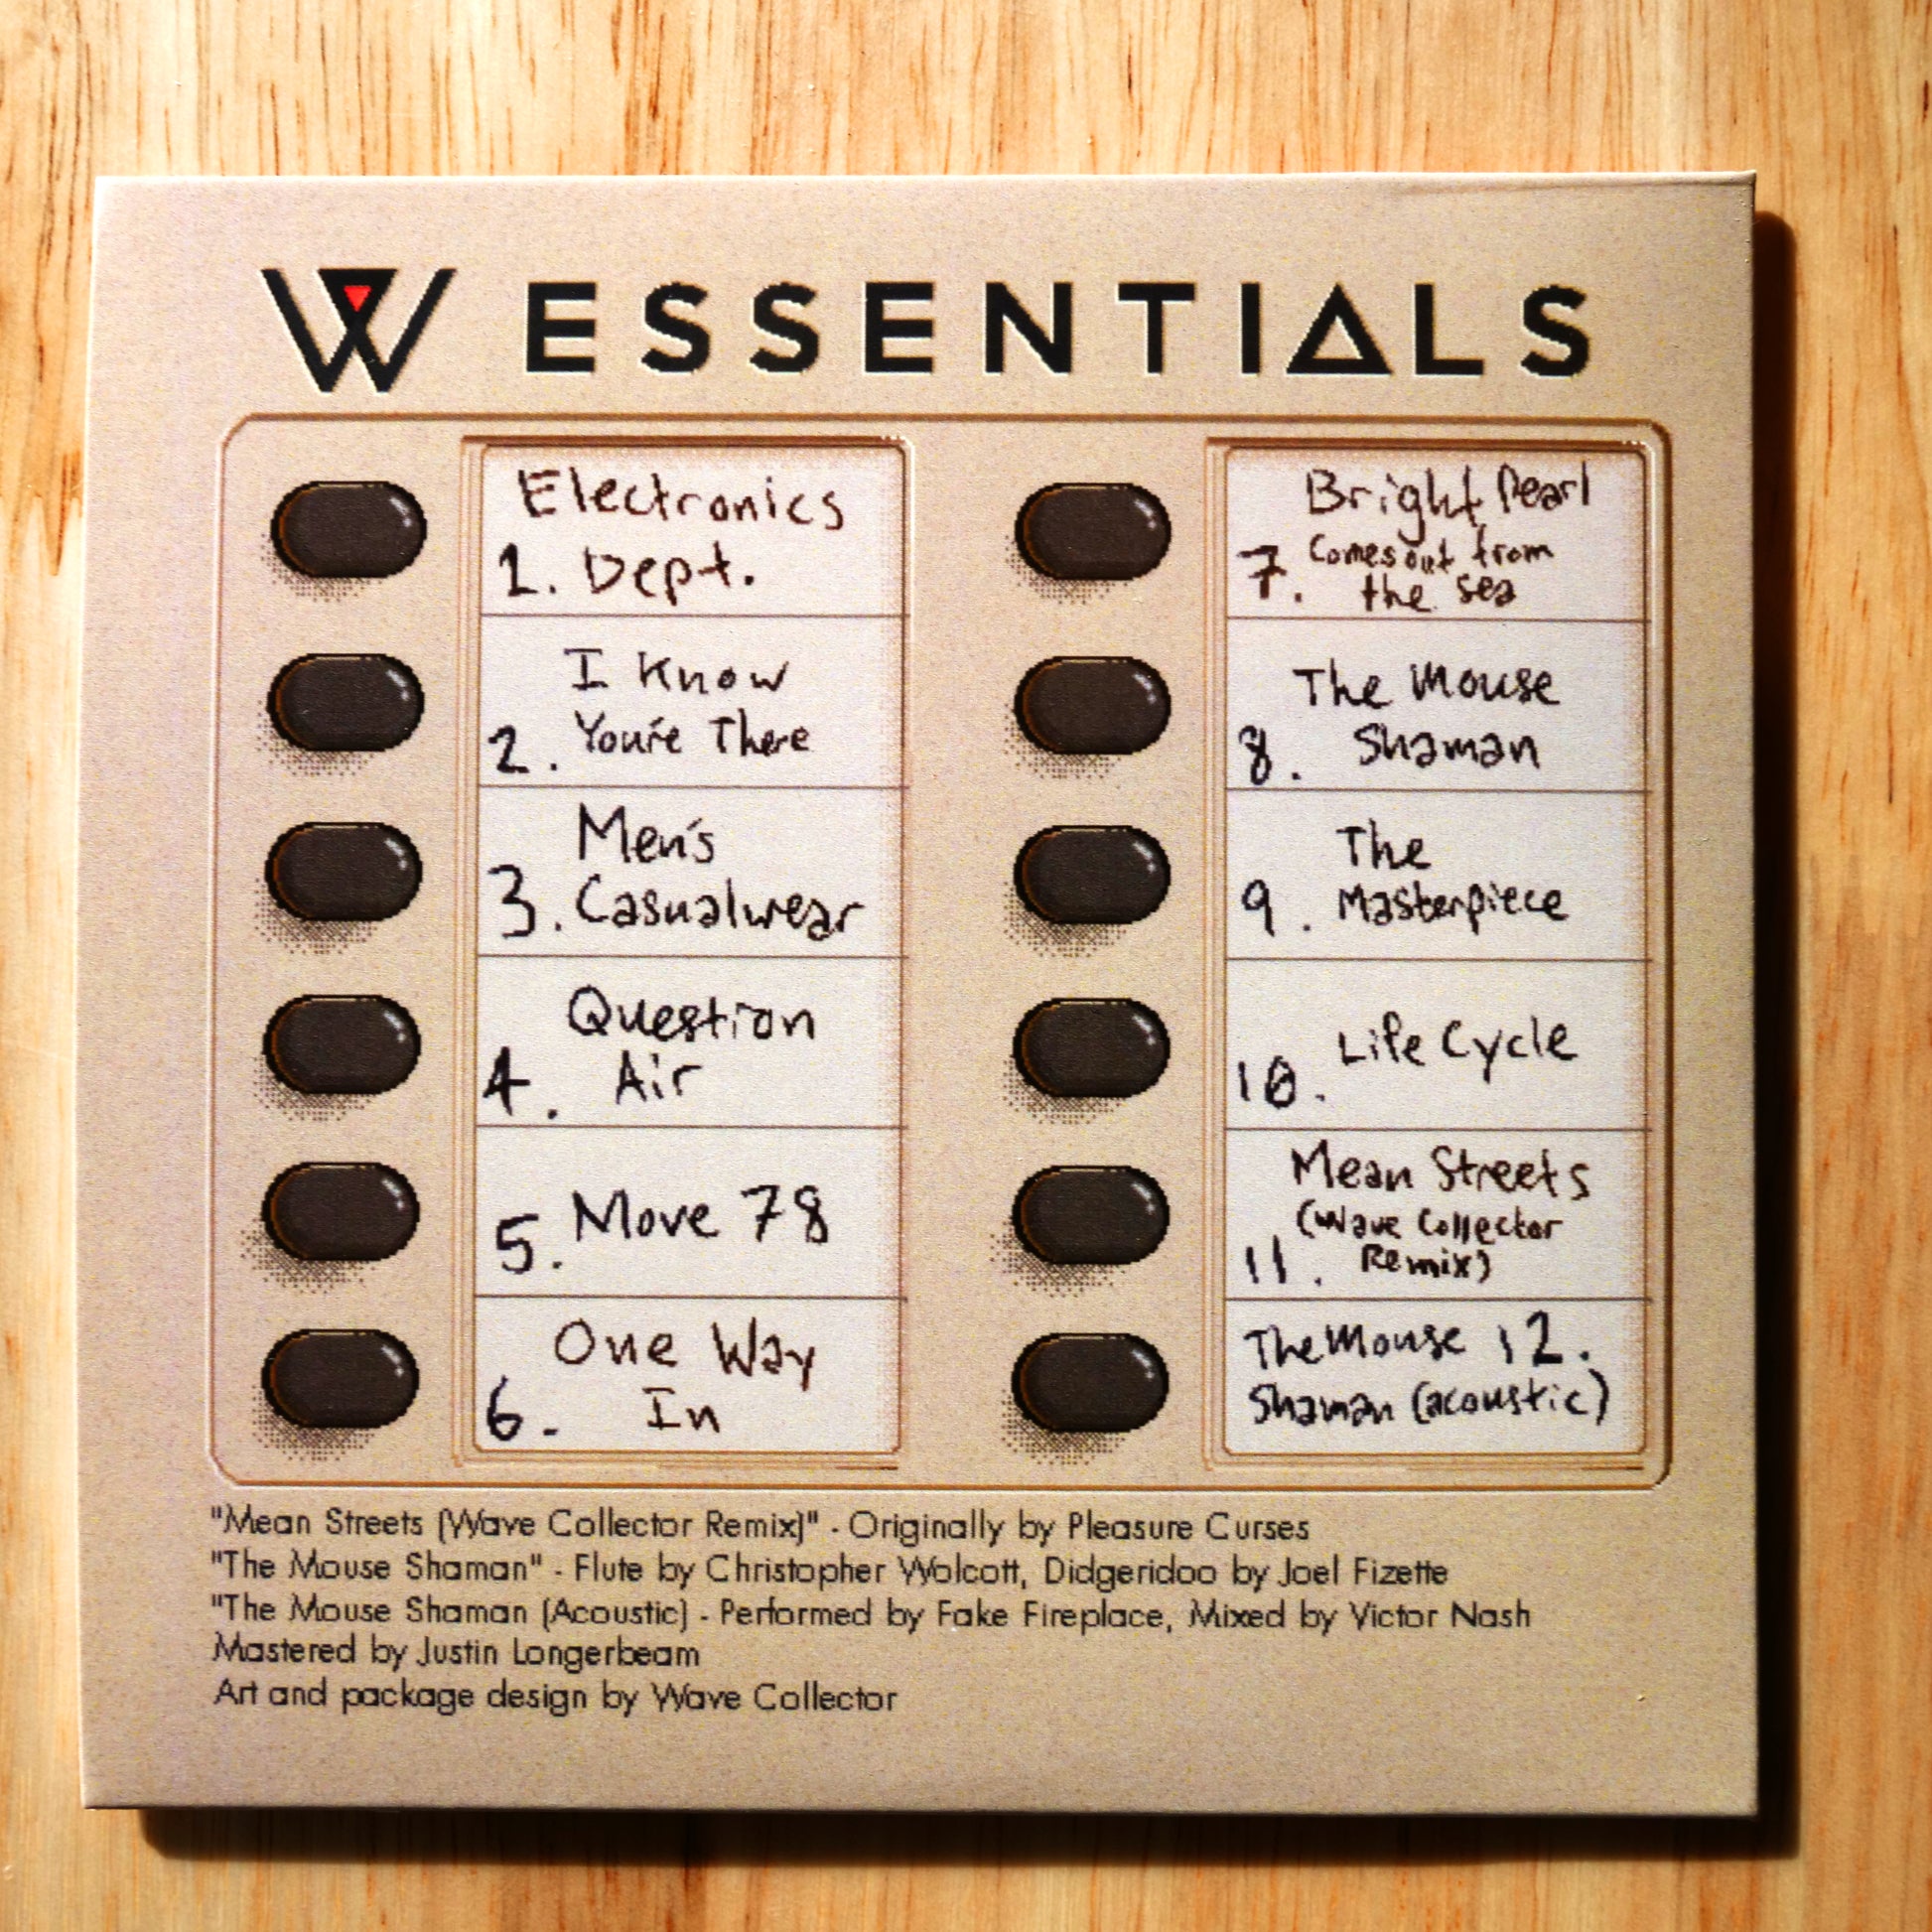 W ESSENTIALS
Electronics
1. Dept.
I Know
2. You're There
Men's
3. Casualwear
Question
4. Air
5. Move 78
One Way
6. In
Bright Pearl
7. Comes out from
the sea
The Mouse
8. Shaman
The
9. Masterpiece
10. Life Cycle
Mean Streets
(Wave Collector
11. Remix)
The Mouse 12.
Shaman (acoustic)
"Mean Streets (Wave Collector Remix)" - Originally by Pleasure Curses
"The Mouse Shaman" - Flute by Christopher Wolcott, Didgeridoo by Joel Fizette
"The Mouse Shaman (Acoustic) - Performed by Fake Fireplace, Mixed by Victor Nash
Mastered by Justin Longerbeam
Art and package design by Wave Collector